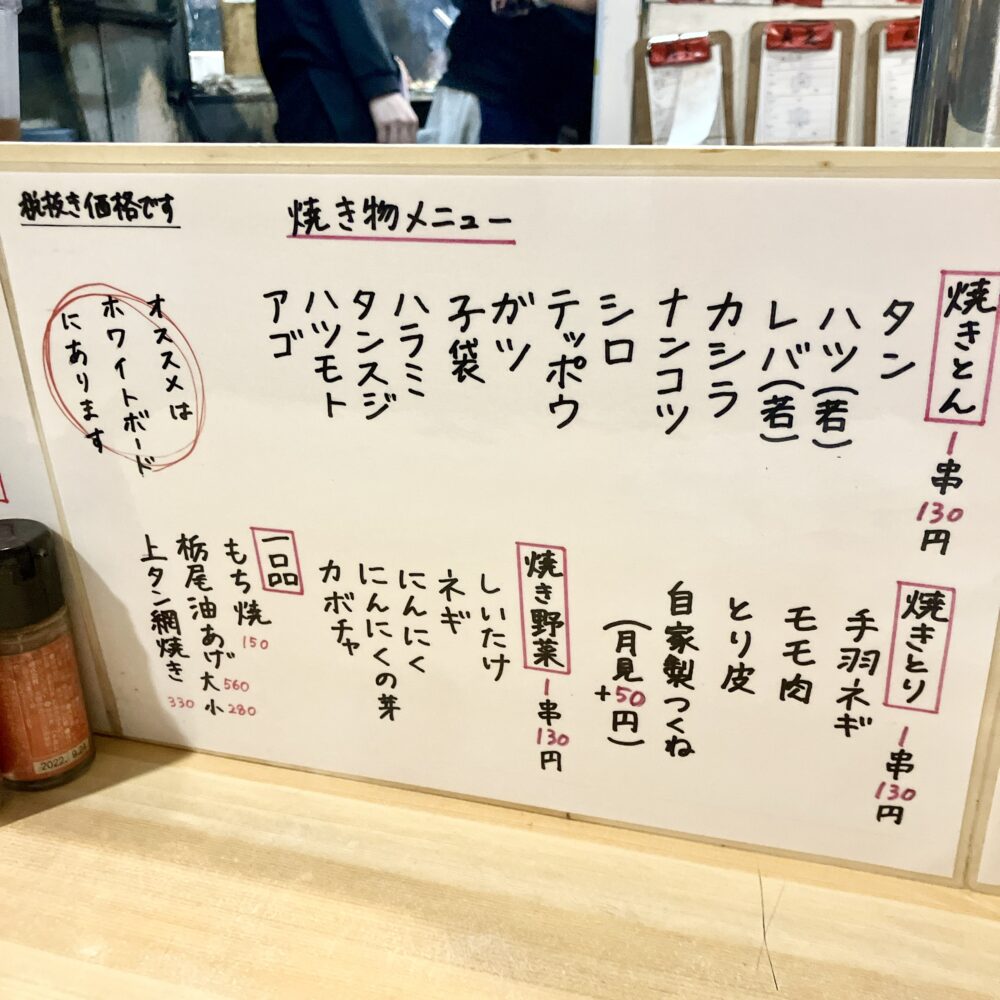 税抜き価格です
焼き物メニュー
焼きとん
一串130円
タン
ハツ(若)
レバ(若)
カシラ
ナンコツ
シロ
テッポウ
ガツ
子袋
ハラミ
タンスジ
ハツモト
アゴ
オススメは
ホワイトボード
にあります
焼きとり
一串130円
手羽ネギ
モモ肉
とり皮
自家製つくね
(月見+50円)
焼き野菜
一串130円
しいたけ
ネギ
にんにく
にんにくの芽
カボチャ
一品
もち焼 150
栃尾油あげ 大560 小280
上タン網焼き 330
2022.9.23